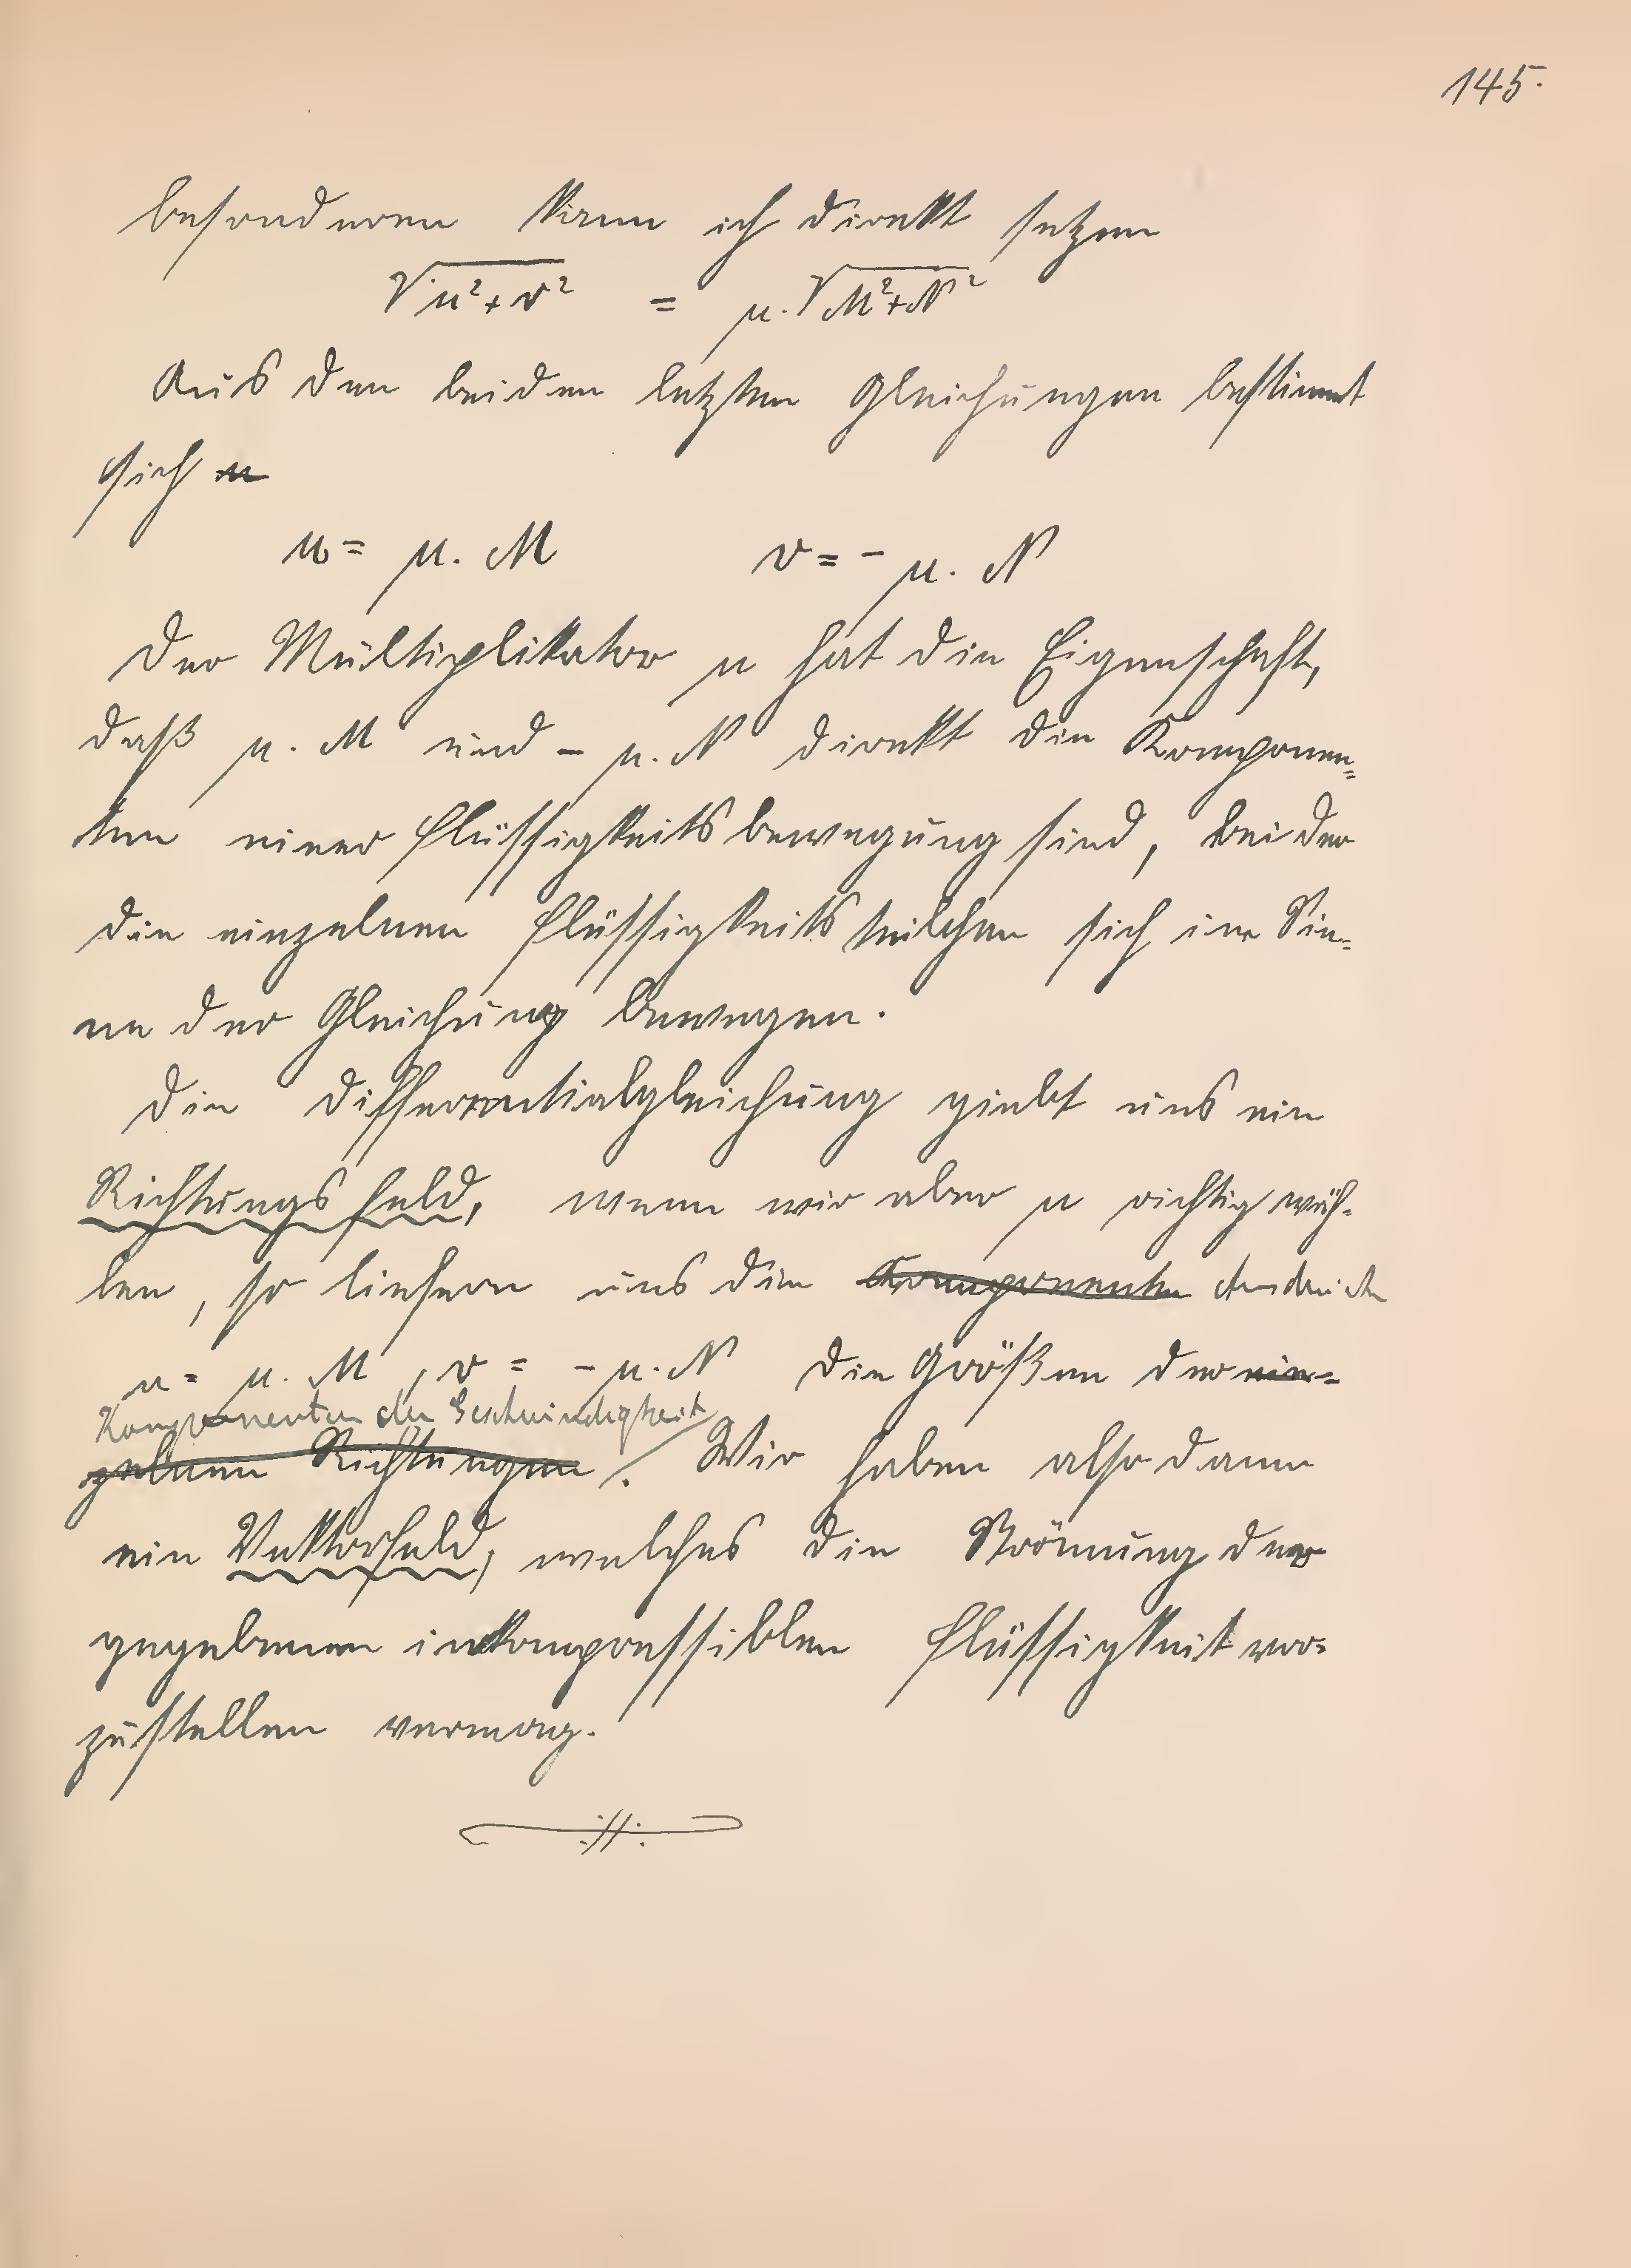 145.
besonderen kann ich direkt setzen
√u²+v² = μ. √M²+N²
Aus den beiden letzten Gleichungen bestimmt
sich u
u = μ. M v = - μ. N
Der Multiplikator μ hat die Eigenschaft,
daß μ. M und - μ. N direkt die Komponen=
ten einer Flüssigkeitsbewegung sind, bei der
die einzelnen Flüssigkeitsteilchen sich im Sin=
ne der Gleichung bewegen.
Die Differentialgleichung giebt uns ein
Richtungsfeld, wenn wir aber μ richtig wäh=
len, so liefern uns die Komponenten Ausdrücke
u = μ. M , v = - μ. N die Größen der ein=
Komponenten der Geschwindigkeit
zelnen Richtungen. Wir haben also dann
ein Vektorfeld, welches die Strömung der
gegebenen inkompressiblen Flüssigkeit vor=
zustellen vermag.